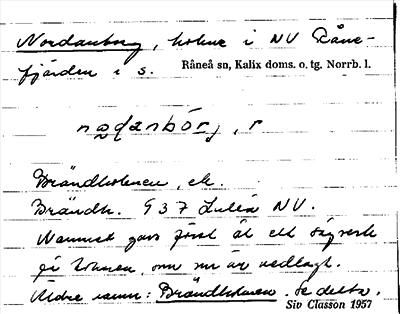 Nordanborg, holme i NV Råne-
fjärden i s.
Råneå sn, Kalix doms. o. tg, Norrb. l.
Brändholmen, ek.
Brändh. 937 Luleå NV.
Namnet gavs först åt ett sågverk
på holmen, om nu är nedlagt.
Äldre namn: Brändholmen. Se detta.
Siv Classon 1957